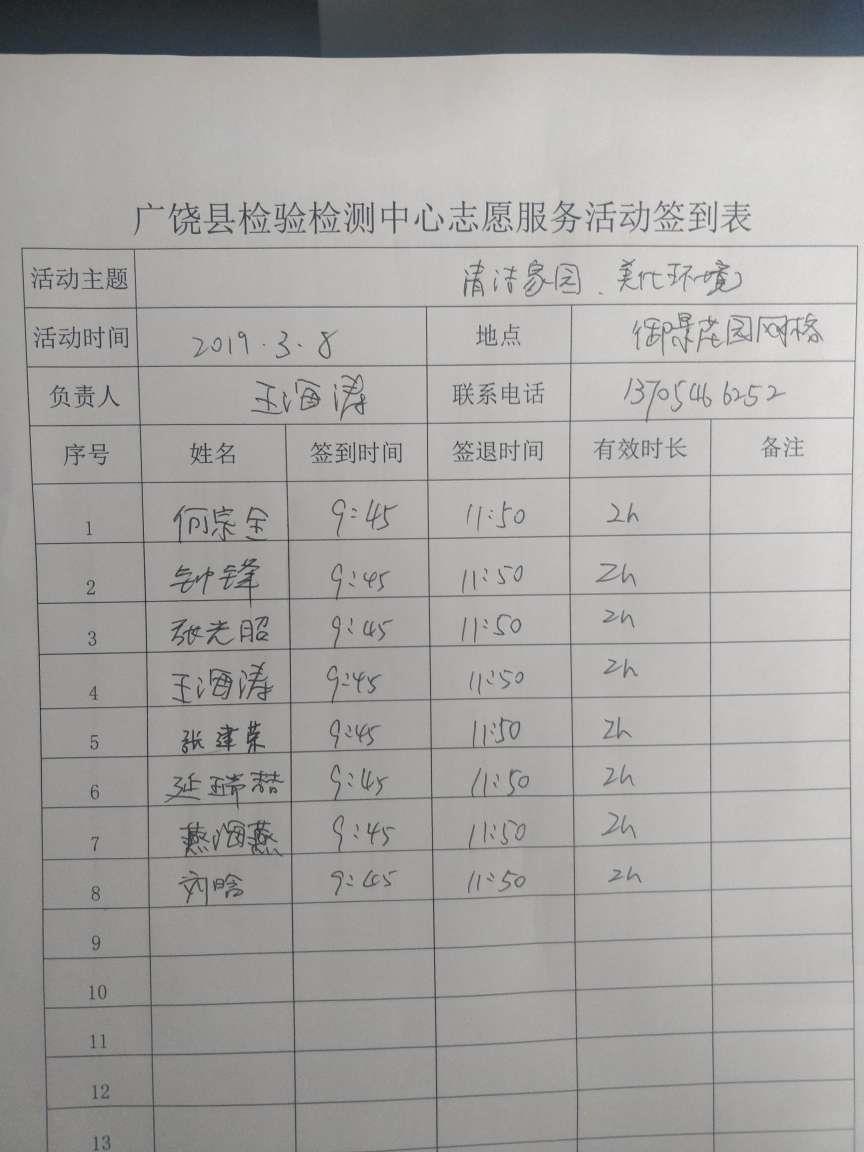 广饶县检验检测中心志愿服务活动签到表
活动主题 清洁家园、美化环境
活动时间 2019.3.8 地点 御景庄园网格
负责人 王海涛 联系电话 13705466252
序号 姓名 签到时间 签退时间 有效时长 备注
1 何宗全 9:45 11:50 2h
2 钟锋 9:45 11:50 2h
3 张光昭 9:45 11:50 2h
4 王海涛 9:45 11:50 2h
5 张建荣 9:45 11:50 2h
6 延瑞 9:45 11:50 2h
7 燕海燕 9:45 11:50 2h
8 刘晗 9:45 11:50 2h
9
10
11
12
13